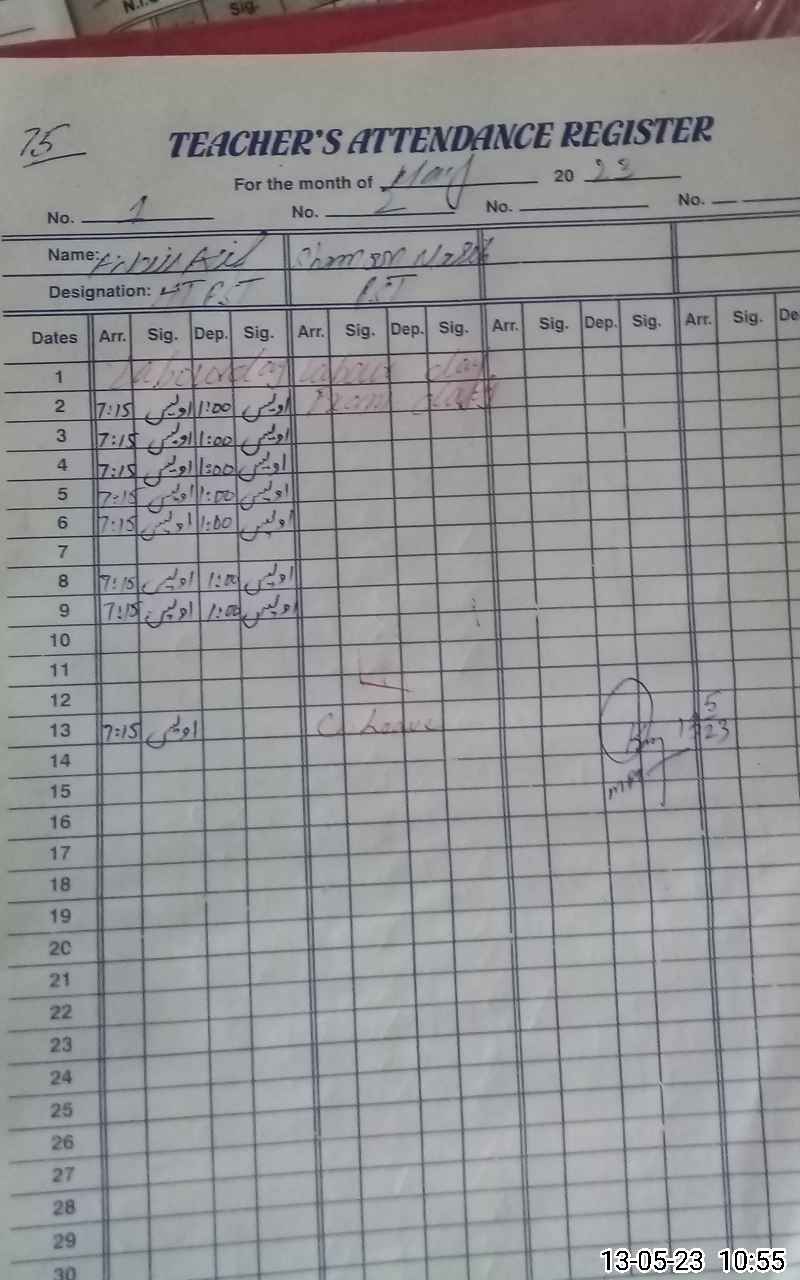 N.I.C Sig.
75
TEACHER'S ATTENDANCE REGISTER
For the month of May 20 23
No. 1 No. 2 No. No.
Name:
Designation: HT PST PST
Dates Arr. Sig. Dep. Sig. Arr. Sig. Dep. Sig. Arr. Sig. Dep. Sig. Arr. Sig. De
1 Labour day Labour day
2 7:15 اویس 1:00 اویس Exam duty
3 7:15 اویس 1:00 اویس
4 7:15 اویس 1:00 اویس
5 7:15 اویس 1:00 اویس
6 7:15 اویس 1:00 اویس
7
8 7:15 اویس 1:00 اویس
9 7:15 اویس 1:00 اویس
10
11
12 5
13 7:15 اویس C. Leave 13 23
14
15
16
17
18
19
20
21
22
23
24
25
26
27
28
29
30
13-05-23 10:55